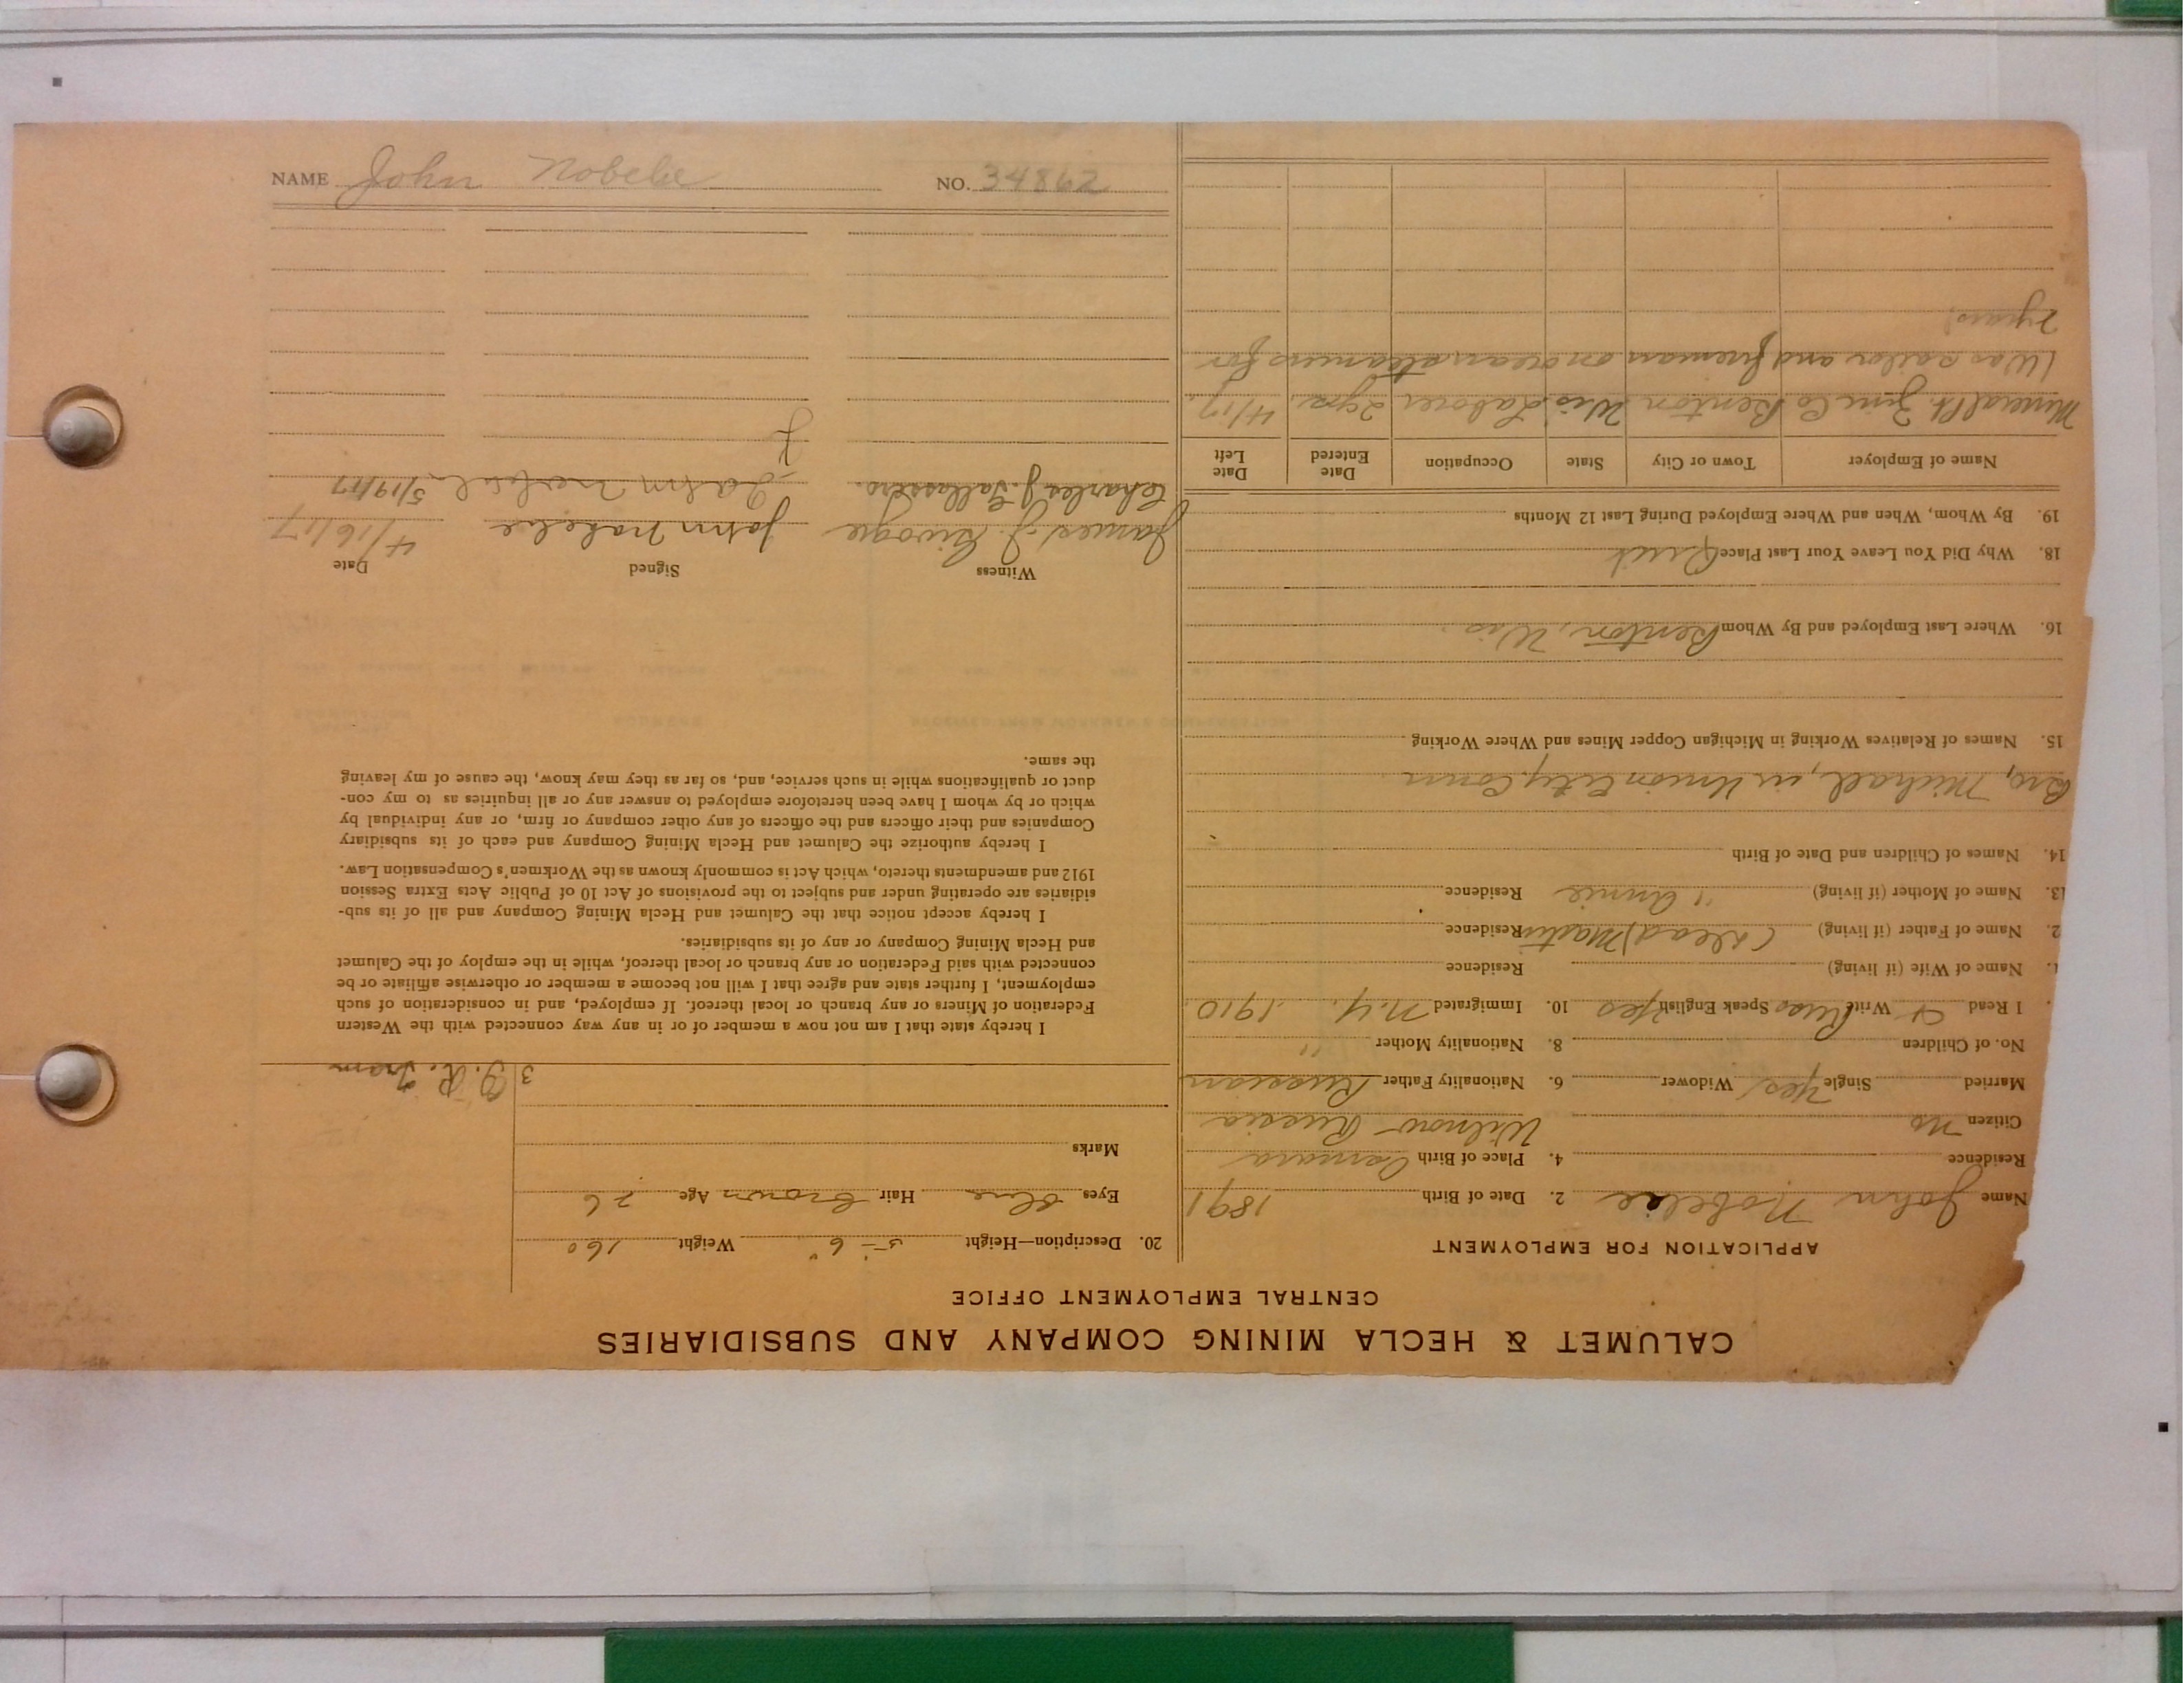 CALUMET & HECLA MINING COMPANY AND SUBSIDIARIES
CENTRAL EMPLOYMENT OFFICE
APPLICATION FOR EMPLOYMENT
Name John Nobelie 2. Date of Birth 1891
Residence 4. Place of Birth
Citizen No Wilnow Russia
Married Single Yes Widower 6. Nationality Father Russian
No. of Children 8. Nationality Mother "
I Read + Write Russ Speak English Yes 10. Immigrated N.Y. 1910
Name of Wife (if living) Residence
2. Name of Father (if living) (Dead) Martin Residence
13. Name of Mother (if living) " Annie Residence
14. Names of Children and Date of Birth
Bro, Michael, in Union City Conn
15. Names of Relatives Working in Michigan Copper Mines and Where Working
16. Where Last Employed and By Whom Benton, Wis.
18. Why Did You Leave Your Last Place Quit
19. By Whom, When and Where Employed During Last 12 Months
Name of Employer Town or City State Occupation Date Entered Date Left
Mineral Pt. Zinc Co Benton Wis Laborer 2 yrs. 4/17.
Was sailor and fireman on ocean steamers for
2 years.
20. Description—Height 5' 6" Weight 160
Eyes Blue Hair Brown Age 26
Marks
3 Tram
I hereby state that I am not now a member of or in any way connected with the Western
Federation of Miners or any branch or local thereof. If employed, and in consideration of such
employment, I further state and agree that I will not become a member or otherwise affiliate or be
connected with said Federation or any branch or local thereof, while in the employ of the Calumet
and Hecla Mining Company or any of its subsidiaries.
I hereby accept notice that the Calumet and Hecla Mining Company and all of its sub-
sidiaries are operating under and subject to the provisions of Act 10 of Public Acts Extra Session
1912 and amendments thereto, which Act is commonly known as the Workmen's Compensation Law.
I hereby authorize the Calumet and Hecla Mining Company and each of its subsidiary
Companies and their officers and the officers of any other company or firm, or any individual by
which or by whom I have been heretofore employed to answer any or all inquiries as to my con-
duct or qualifications while in such service, and, so far as they may know, the cause of my leaving
the same.
Witness Signed Date
James J. John Nobelie 4/16/17
Charles J. John 5/19/17
NAME John Nobelie NO. 34862